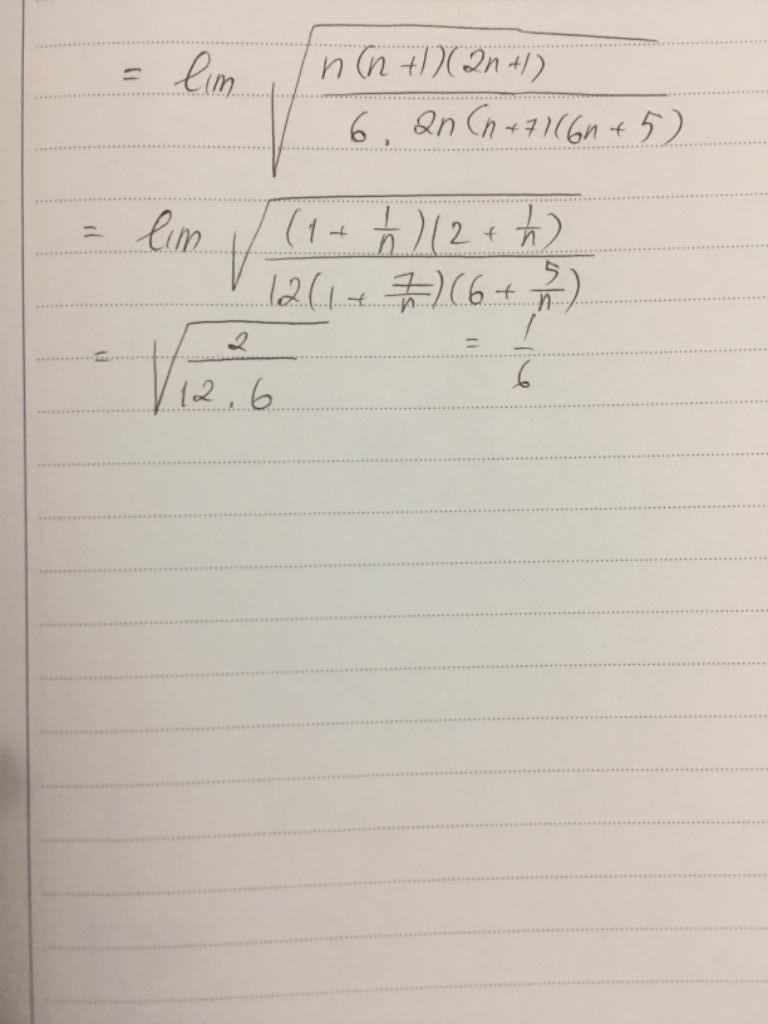 = lim √(n(n+1)(2n+1) / 6 . 2n(n+7)(6n+5))
= lim √((1 + 1/n)(2 + 1/n) / 12(1 + 7/n)(6 + 5/n))
= √(2 / 12 . 6) = 1/6